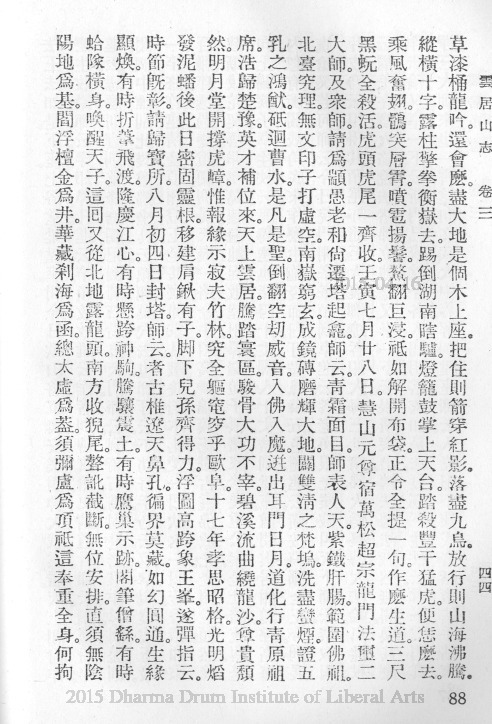 雲居山志 卷三 四四
草漆桶龍吟還會麽盡大地是個木上座把住則箭穿紅影落盡九烏放行則山海沸騰
縱橫十字露柱擎拳衡嶽去踢倒湖南瞎驢燈籠鼓掌上天台踏殺豐干猛虎便恁麽去
乘風奮翅鶻突層霄噴雹揚鬐鰲翻巨浸祇如解開布袋正令全提一句作麽生道三尺
黑蚖全殺活虎頭虎尾一齊收壬寅七月廿八日慧山元尊宿萬松超宗龍門法璽二
大師及衆師請爲顓愚老和尙遷塔起龕師云靑霜面目師表人天紫鐵肝腸範圍佛祖
北臺究理無文印子打虛空南嶽窮玄成鏡磚磨輝大地闢雙淸之梵塢洗盡蠻煙證五
乳之鴻猷砥迴曹水是凡是聖倒翻空刧威音入佛入魔迸出耳門日月道化行靑原祖
席浩歸楚豫英才補位來天上雲居騰踏寰區駿骨大功不宰碧溪流曲繞龍沙尊貴頹
然明月堂開撐虎嶂惟報緣示寂夫竹林究全軀窀穸乎歐阜十七年孝思昭格光明熖
發泥蟠後此日密固靈根移建肩鍬有子脚下兒孫齊得力浮圖高跨象王峯遂彈指云
時節旣彰請歸寶所八月初四日封塔師云者古椎遼天鼻孔徧界莫藏如幻圓通生緣
顯煥有時折葦飛渡隆慶江心有時懸跨神駒騰驤震土有時鷹巢示跡閣筆僧繇有時
蛤隊橫身喚醒天子這囘又從北地露龍頭南方收猊尾聲訛截斷無位安排直須無陰
陽地爲基閻浮檀金爲井華藏剎海爲函總太虛爲蓋須彌盧爲頂祇這奉重全身何拘
88
2015 Dharma Drum Institute of Liberal Arts